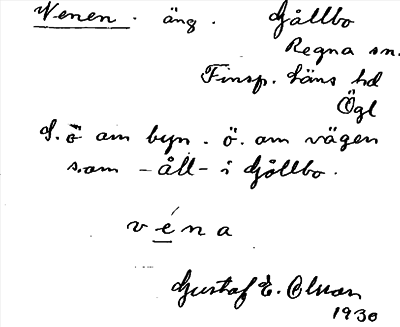 Venen. äng. Gållbo
Regna sn.
Finsp. läns hd
Ögl
S.ö om byn. ö. om vägen
s.om -åll- i Gållbo.
véna
Gustaf E. Olsson
1930